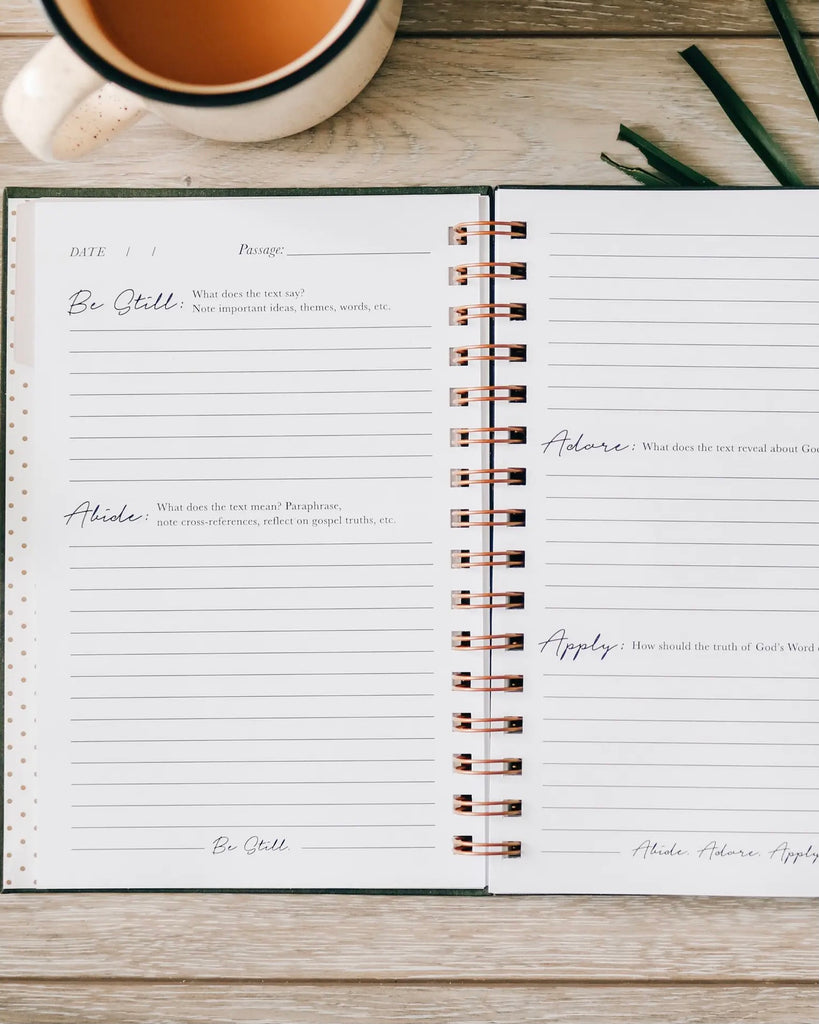 DATE / /
Passage:
Be Still: What does the text say?
Note important ideas, themes, words, etc.
Abide: What does the text mean? Paraphrase,
note cross-references, reflect on gospel truths, etc.
Be Still.
Adore: What does the text reveal about
Apply: How should the truth of God's Word
Abide. Adore. Apply